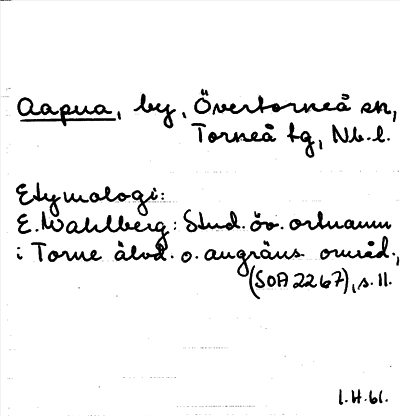 Aapua, by, Övertorneå sn,
Torneå tg, Nb. l.
Etymologi:
E. Wahlberg: Stud. öv. ortnamn
i Torne älvd. o. angräns. områd.,
(SOA 2267), s. 11.
I. H. 61.